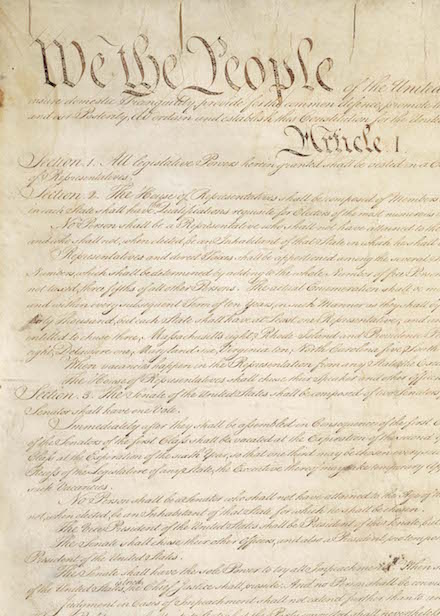 We the People of the United
insure domestic Tranquility, provide for the common defence, promote
and our Posterity, do ordain and establish this Constitution for the United
Article. I.
Section. 1. All legislative Powers herein granted shall be vested in a
of Representatives.
Section. 2. The House of Representatives shall be composed of Members
in each State shall have Qualifications requisite for Electors of the most numerous
No Person shall be a Representative who shall not have attained to the
and who shall not, when elected, be an Inhabitant of that State in which he shall
Representatives and direct Taxes shall be apportioned among the several
Numbers, which shall be determined by adding to the whole Number of free Persons
not taxed, three fifths of all other Persons. The actual Enumeration shall be
and within every subsequent Term of ten Years, in such Manner as they shall
thirty Thousand, but each State shall have at Least one Representative; and
entitled to chuse three, Massachusetts eight, Rhode Island and Providence
eight, Delaware one, Maryland six, Virginia ten, North Carolina five,
When vacancies happen in the Representation from any State, the
The House of Representatives shall chuse their Speaker and other
Section. 3. The Senate of the United States shall be composed of two Senators
Senator shall have one Vote.
Immediately after they shall be assembled in Consequence of the first
of the Senators of the first Class shall be vacated at the Expiration of the second
Class at the Expiration of the sixth Year, so that one third may be chosen every second
Recess of the Legislature of any State, the Executive thereof may make temporary
such Vacancies.
No Person shall be a Senator who shall not have attained to the Age of
not, when elected, be an Inhabitant of that State for which he shall be chosen.
The Vice President of the United States shall be President of the Senate, but
The Senate shall chuse their other Officers, and also a President pro tempore,
President of the United States.
The Senate shall have the sole Power to try all Impeachments. When
of the United States is tried, the Chief Justice shall preside: And no Person shall be
Judgment in Cases of Impeachment shall not extend further than to